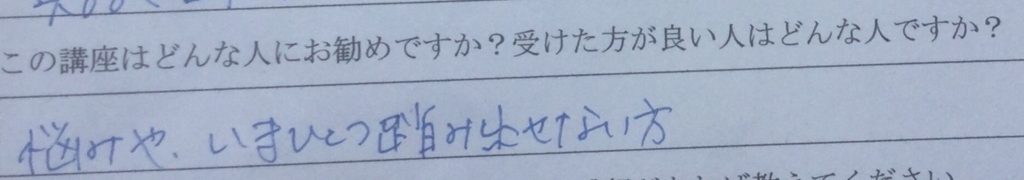 この講座はどんな人にお勧めですか？受けた方が良い人はどんな人ですか？
悩みや、いまひとつ踏み出せない方
教えてください